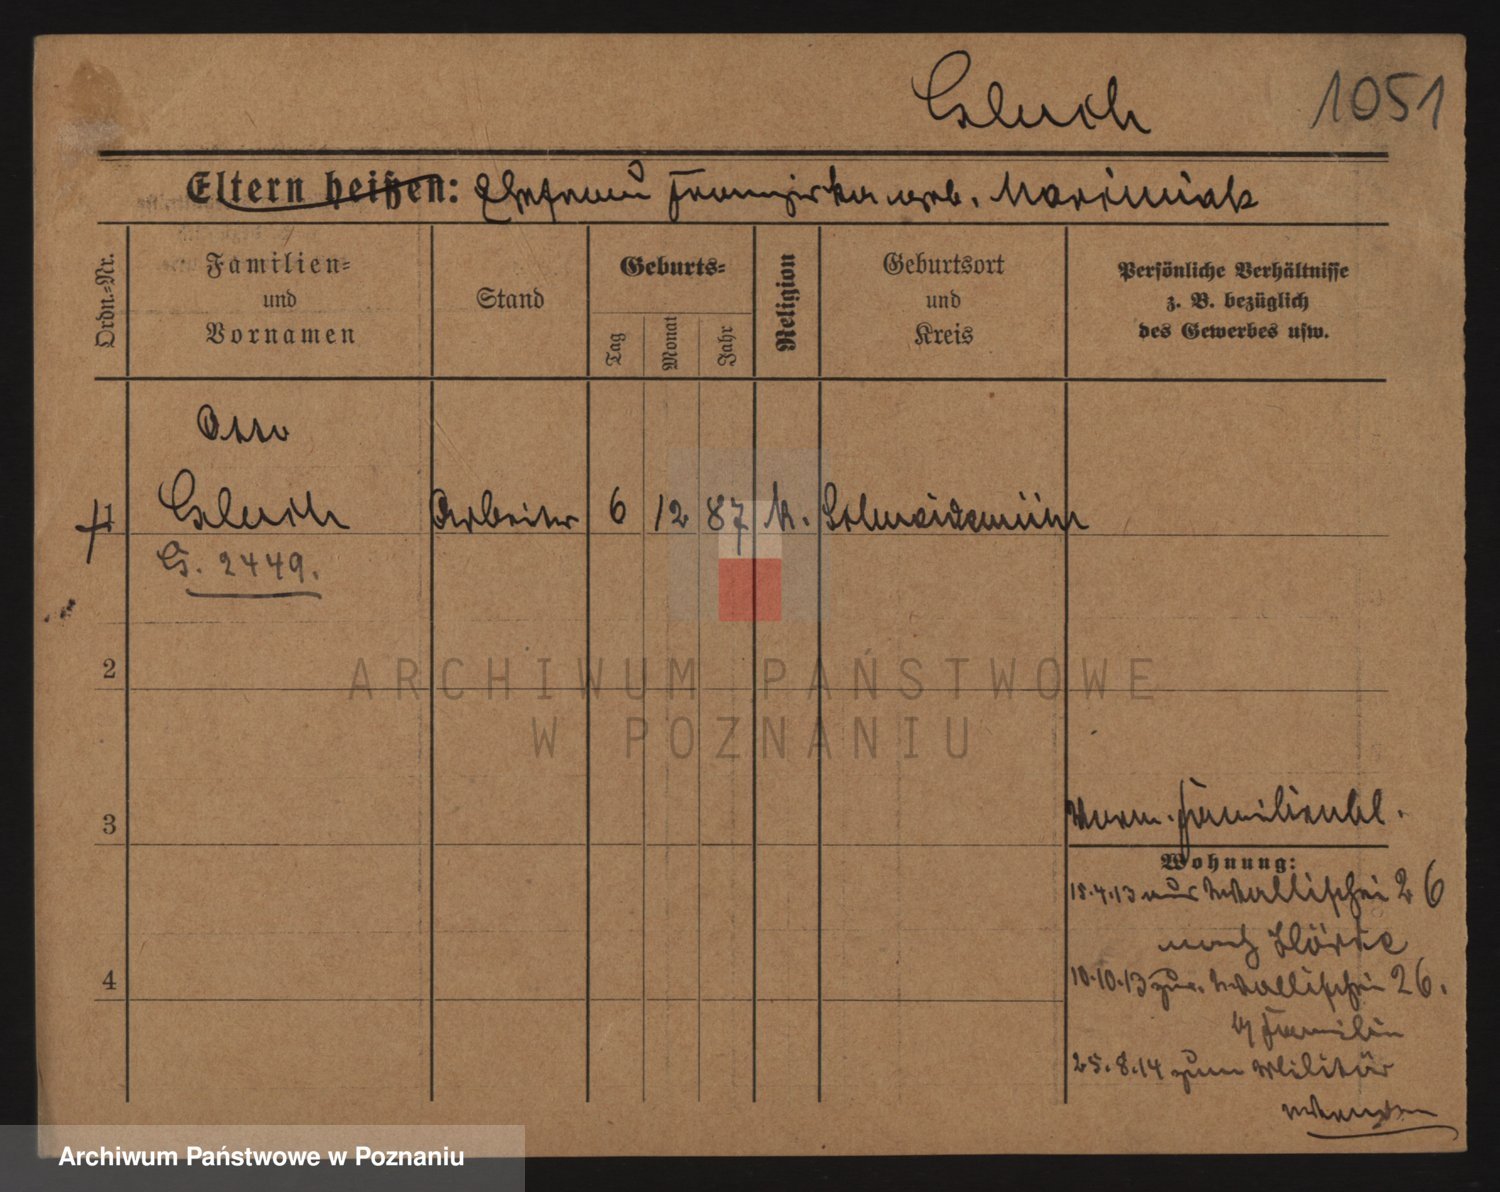 Gluch 1051
Eltern heißen: Ehefrau Franziska geb. Marciniak
Ordn.-Nr.
Familien-
und
Vornamen
Stand
Geburts-
Tag
Monat
Jahr
Religion
Geburtsort
und
Kreis
Persönliche Verhältnisse
z. B. bezüglich
des Gewerbes usw.
Otto
1 Gluch Arbeiter 6 12 87 k. Schneidemühl
G. 2449.
2
ARCHIWUM PAŃSTWOWE
W POZNANIU
3
Familienbl.
Wohnung:
18.4.13 aus Wallischei 26
nach
10.10.13 zur. Wallischei 26.
Familie
4
25.8.14 zum Militär
Archiwum Państwowe w Poznaniu